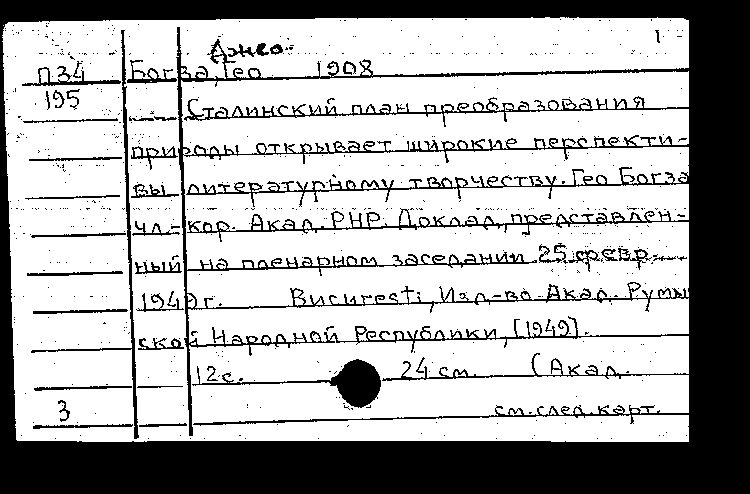 Джео- 1
П34 Богза, Гео 1908
195 Сталинский план преобразования
природы открывает широкие перспекти-
вы литературному творчеству. Гео Богза
чл.-кор. Акад. РНР. Доклад, представлен-
ный на пленарном заседании 25 февр.
1949 г. Bucureşti, Изд-во Акад. Румы
ской Народной Республики, [1949].
12 с. 24 см. (Акад.
3 см. след. карт.